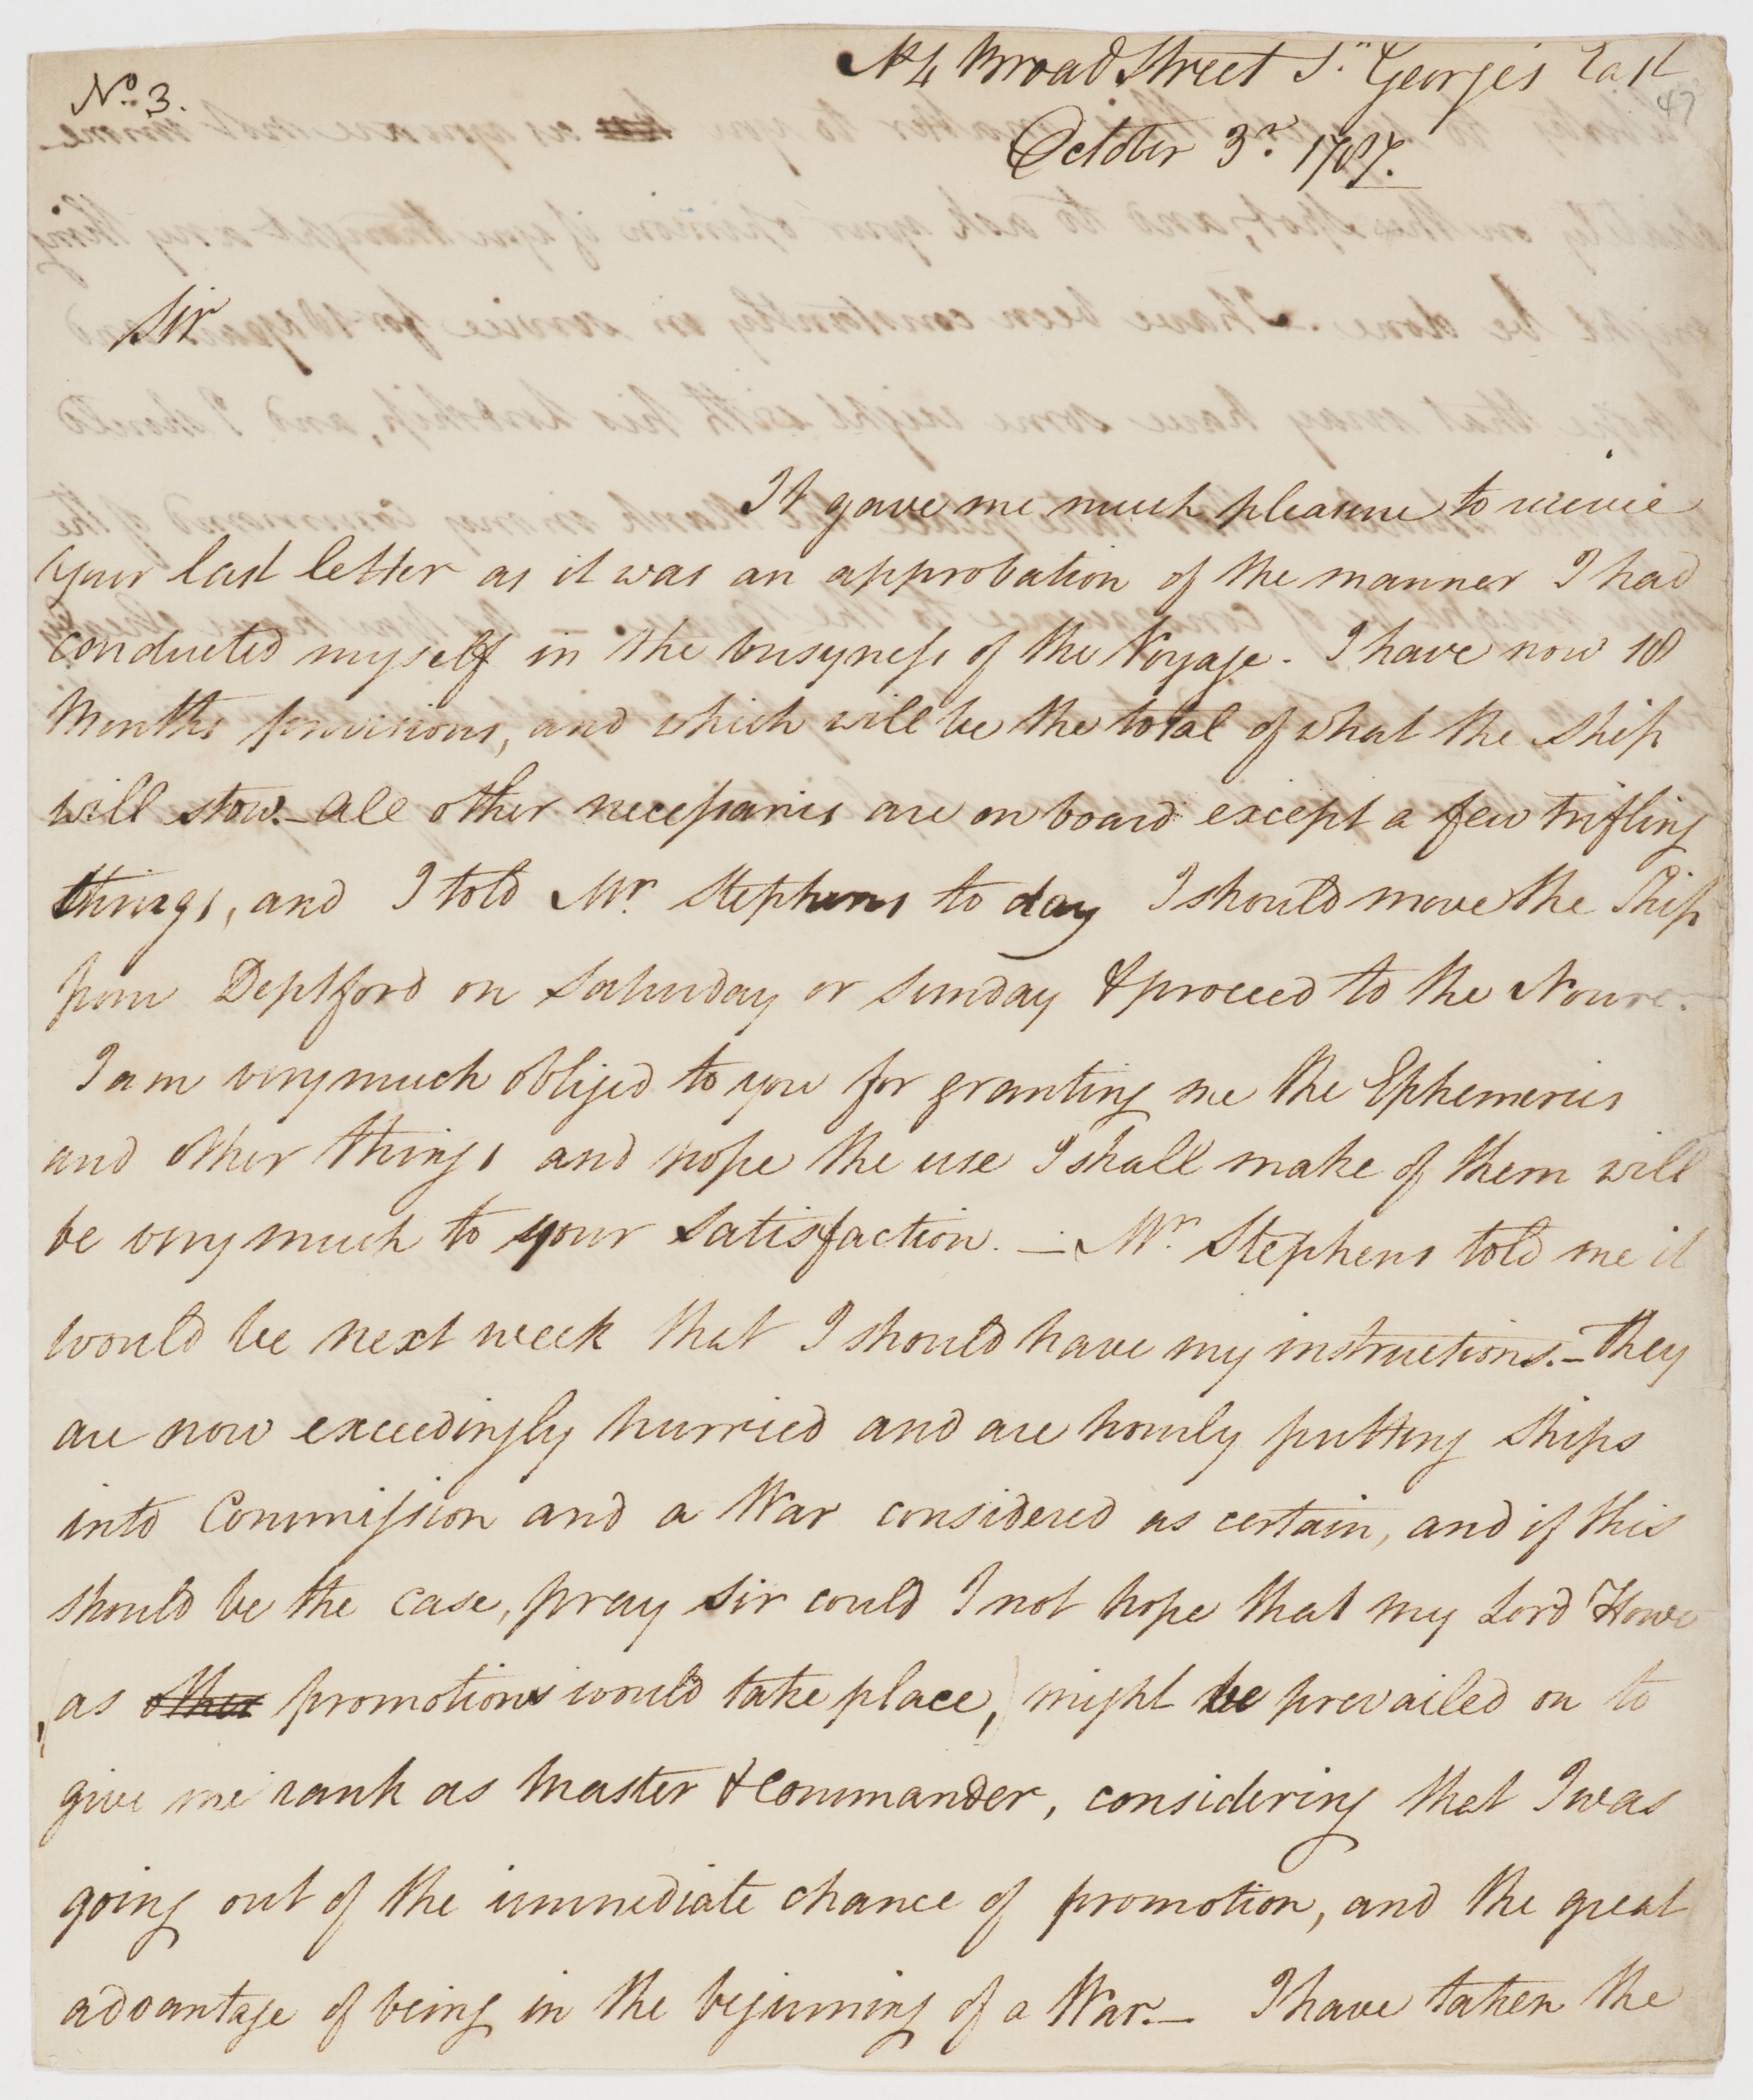 No. 3.
No 4 Broad Street St. Georges East
47
October 3d. 1787.
Sir
It gave me much pleasure to receive
your last letter as it was an approbation of the manner I had
conducted myself in the busyness of the Voyage. I have now 18
Months provisions, and which will be the total of what the ship
will stow. - All other necessaries are on board except a few trifling
things, and I told Mr. Stephens to day I should move the Ship
from Deptford on Saturday or Sunday & proceed to the Nowre.
I am very much obliged to you for granting me the Ephemeries
and other things and hope the use I shall make of them will
be very much to your satisfaction. - Mr. Stephens told me it
would be next week that I should have my instructions. - They
are now exceedingly hurried and are hourly putting ships
into Commission and a War considered as certain, and if this
should be the case, pray Sir could I not hope that my Lord Howe
(as other promotions would take place,) might be prevailed on to
give me rank as Master & Commander, considering that I was
going out of the immediate chance of promotion, and the great
advantage of being in the beginning of a War. - I have taken the